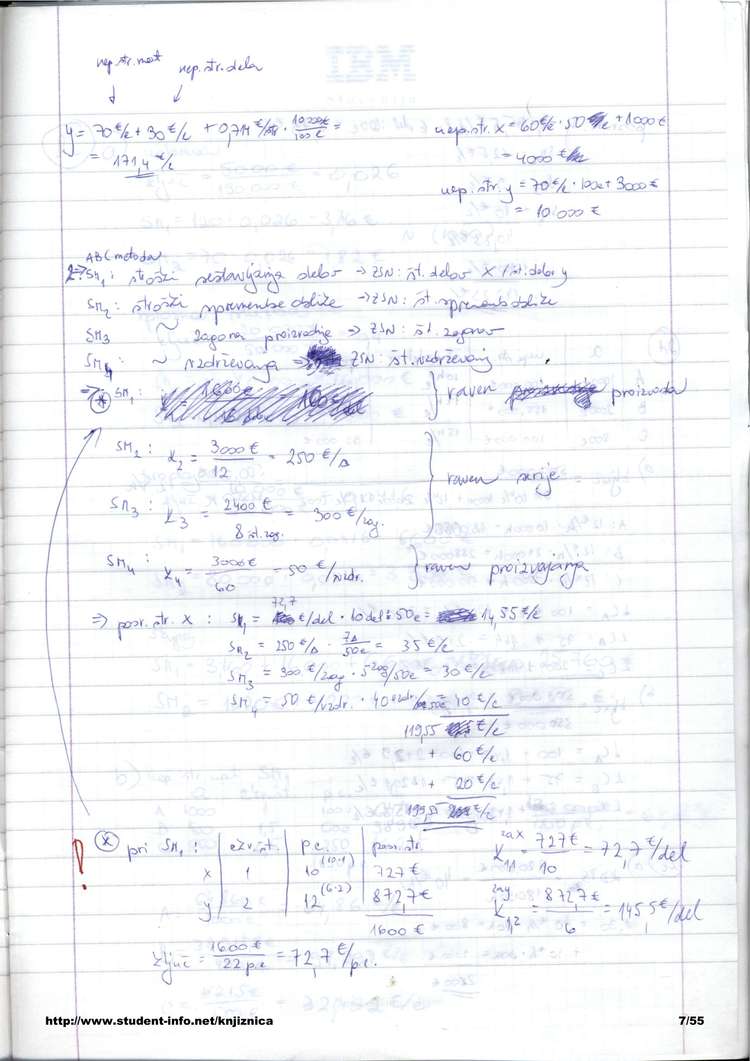 nep.str.mat nep.str.dela
y = 70 €/e + 30 €/e + 0,714 €/€ · 10.000€/100 e =
= 171,4 €/e
nep.str. x = 60€/e · 50 e + 1000 €
= 4000 €
nep.str. y = 70€/e · 100e + 3000 €
= 10.000 €
ABC metoda
2 => SM1: stroški sestavljanja delov -> ZSN: št. delov x / št. delov y
SM2: stroški spremembe oblike -> ZSN: št. sprememb oblike
SM3 ~ zagona proizvodnje -> ZSN: št. zagonov
SM4 ~ vzdrževanja -> ZSN: št. vzdrževanj
=> (*) SM1: } raven proizvoda
SM2: K2 = 3000 €/12 = 250 €/s
SM3: K3 = 2400 €/8 št. zag. = 300 €/zag. } raven serije
SM4: K4 = 3000 €/60 = 50 €/vzdr. } raven proizvajanja
=> posr. str. x: SM1 = 72,7 €/del · 10 del : 50e = 14,55 €/e
SM2 = 250 €/s · 7s/50e = 35 €/e
SM3 = 300 €/zag · 5 zag/50e = 30 €/e
SM4 = 50 €/vzdr. · 40 vzdr./50e = 40 €/e
119,55 €/e
+ 60 €/e
+ 20 €/e
199,55 €/e
(*) pri SM1: | ekv.št. | p.e. | posr.str.
x | 1 | 10 (10·1) | 727 €
y | 2 | 12 (6·2) | 872,7 €
1600 €
ključ = 1600 €/22 p.e = 72,7 €/p.e.
za x K1,1 = 727 €/10 = 72,7 €/del
za y K1,2 = 872,7 €/6 = 145,5 €/del
http://www.student-info.net/knjiznica 7/55